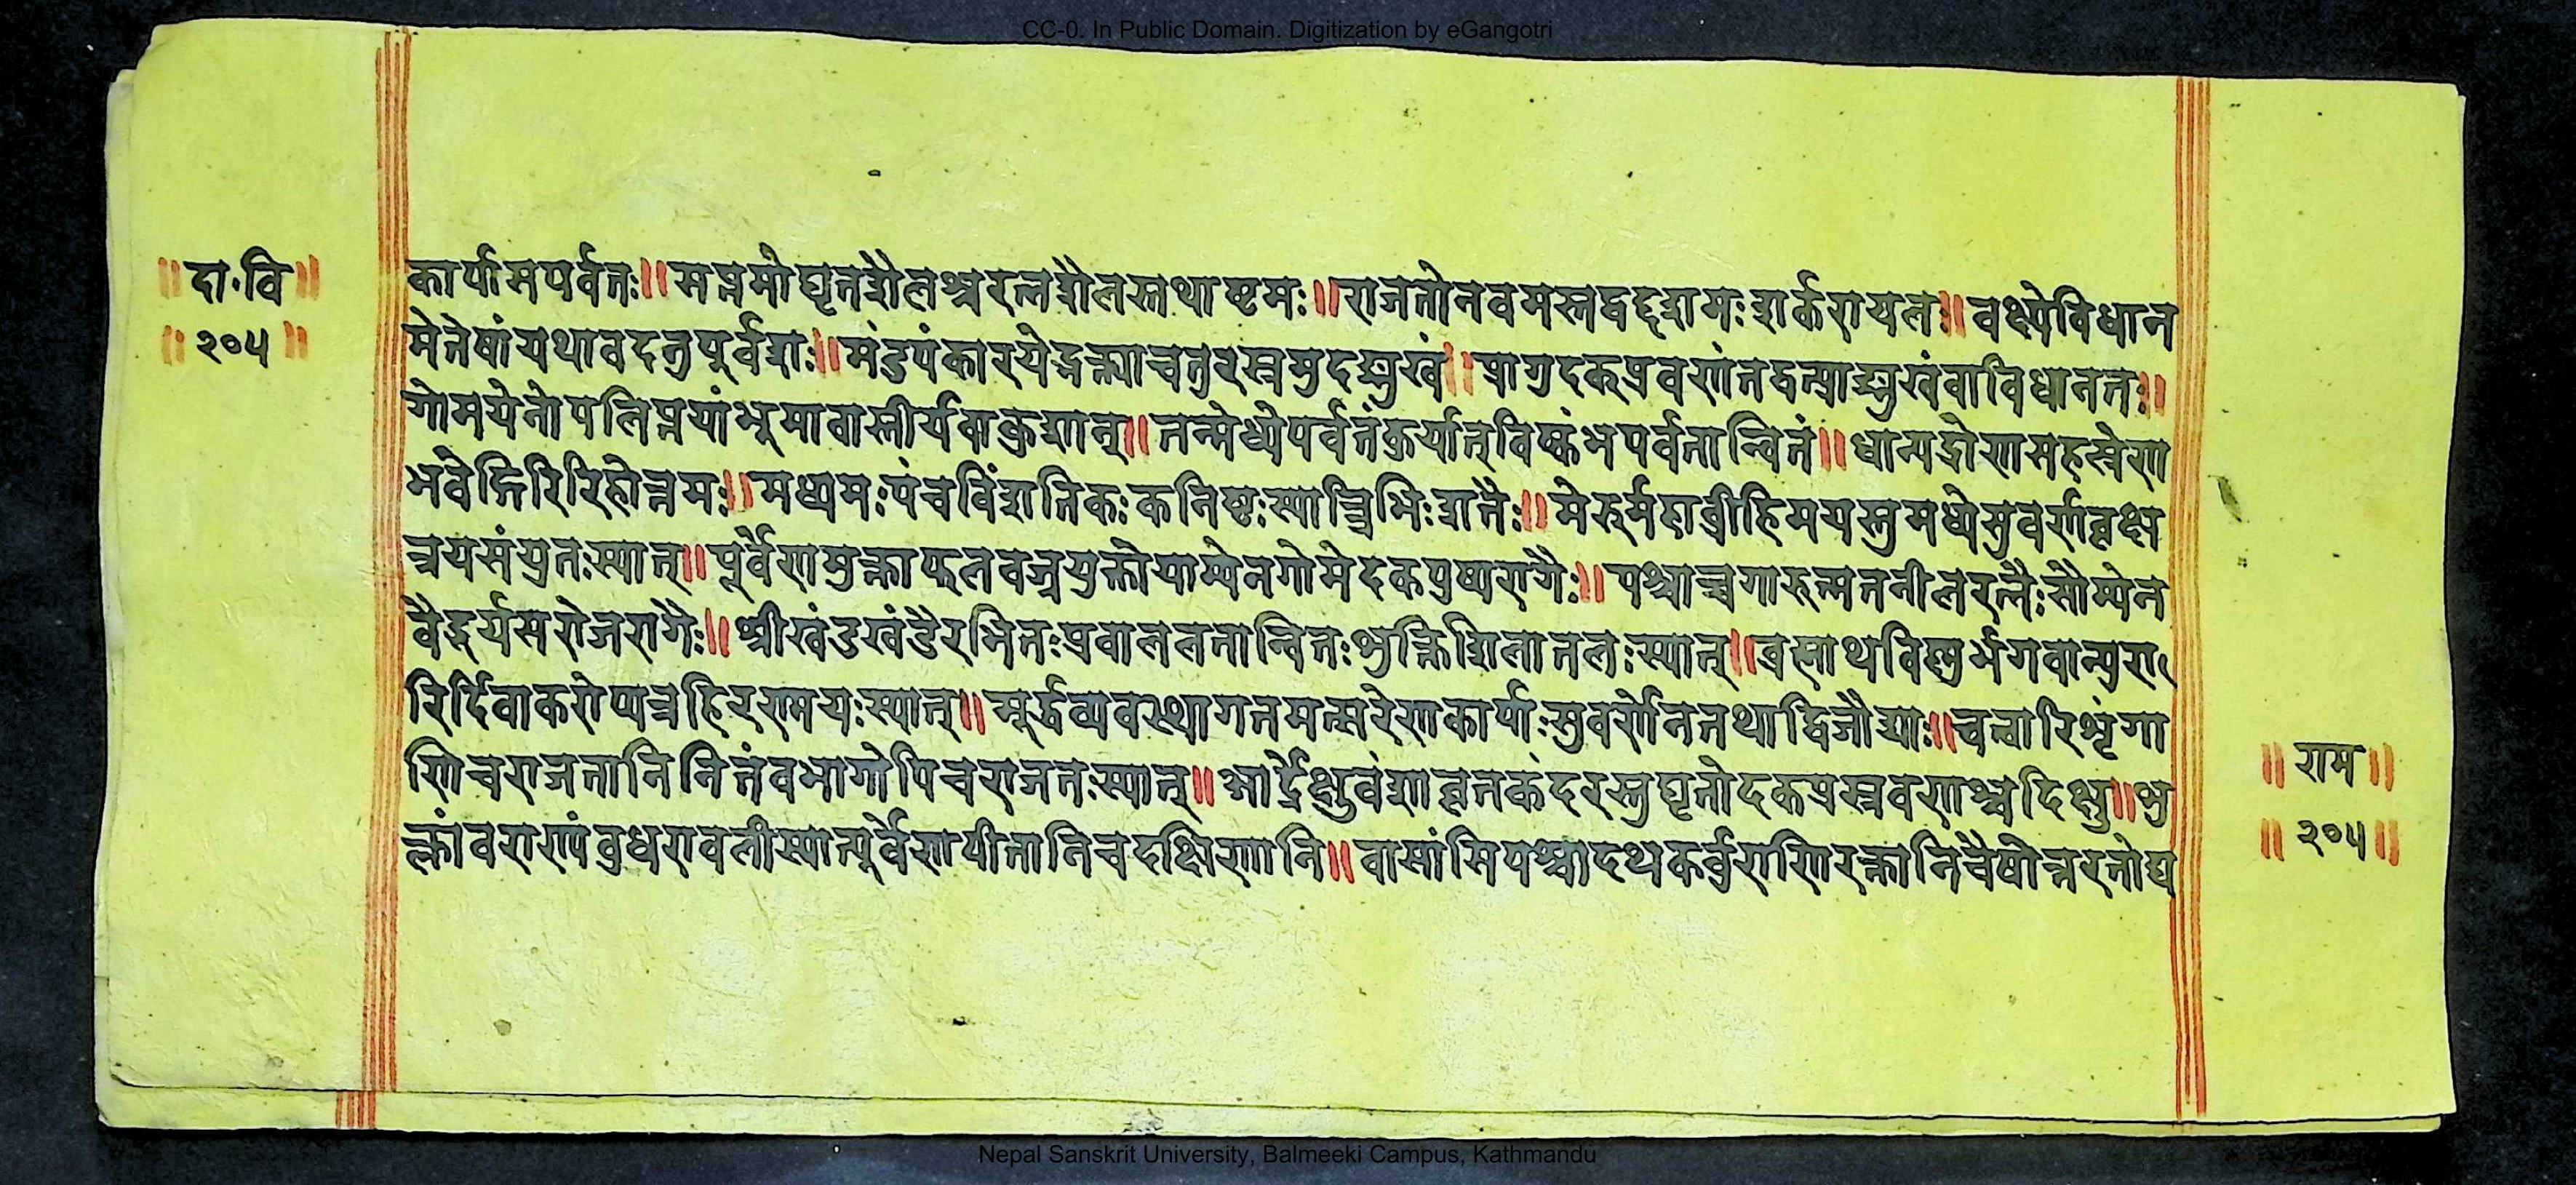 CC-0. In Public Domain. Digitization by eGangotri
॥दा.वि॥
॥२०५॥
कार्पासपर्वतः॥सप्तमोघृतशैलश्चरत्नशैलस्तथाष्टमः॥राजतोनवमस्तद्वद्दशमःशर्कराचलः॥वक्ष्येविधान
मेतेषांयथावदनुपूर्वशः॥मंडपंकारयेद्भक्त्याचतुरस्रमुदङ्मुखं॥प्रागुदक्प्रवणंतद्वत्प्राङ्मुखंवाविधानतः॥
गोमयेनोपलिप्तयांभूमावास्तीर्यवाकुशान्॥तन्मध्येपर्वतंकुर्यात्विष्कंभपर्वतान्वितं॥धान्यद्रोणसहस्रेण
भवेद्गिरिरिहोत्तमः॥मध्यमःपंचविंशतिकःकनिष्ठःस्यात्त्रिभिःशतैः॥मेरुर्महाव्रीहिमयस्तुमध्येसुवर्णवृक्ष
त्रयसंयुतःस्यात्॥पूर्वेणमुक्ताफलवज्रयुक्तोयाम्येनगोमेदकपुष्परागैः॥पश्चाच्चगारुत्मतनीलरत्नैःसौम्येन
वैदूर्यसरोजरागैः॥श्रीखंडखंडैरभितःप्रवाललतान्वितःशुक्तिशिलातलःस्यात्॥ब्रह्माथविष्णुर्भगवान्पुरा
रिर्दिवाकरोप्यत्रहिरण्मयःस्यात्॥मूर्द्धव्यवस्थागतमत्सरेणकार्याःसुवर्णेनतथाद्विजौघाः॥चत्वारिशृंगा
णिचराजतानिनितंबभागोपिचराजतःस्यात्॥आर्द्रेक्षुवंशावृतकंदरस्तुघृतोदकप्रस्रवणश्चदिक्षु॥शु
क्लांवराण्यंबुधरावलीस्यात्पूर्वेणपीतानिचदक्षिणानि॥वासांसिपश्चादथकर्बुराणिरक्तानिचैषोत्तरतोघ
॥राम॥
॥२०५॥
Nepal Sanskrit University, Balmeeki Campus, Kathmandu